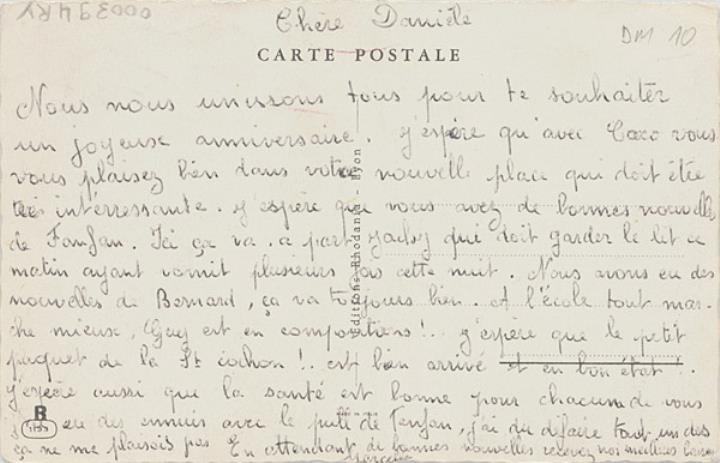 000394RY
Chère Danièle
DM 10
CARTE POSTALE
Nous nous unissons tous pour te souhaiter
un joyeux anniversaire. j'espère qu'avec Coco vous
vous plaisez bien dans votre nouvelle place qui doit être
très intérressante. j'espère que vous avez de bonnes nouvelles
de Fanfan. Ici ça va. a part Jacky qui doit garder le lit ce
matin ayant vomit plusieurs fois cette nuit. Nous avons eu des
nouvelles de Bernard, ça va toujours bien. A l'école tout mar-
che mieux, Guy est en compositions!. j'espère que le petit
paquet de la St cochon!. est bien arrivé et en bon état.
j'espère aussi que la santé est bonne pour chacun de vous
eu des ennuis avec le pull de Fanfan, j'ai du défaire tout un dos
ça ne me plaisais pas En attendant de bonnes nouvelles recevez nos meilleurs baisers
Editions Rhodania - Lyon
R